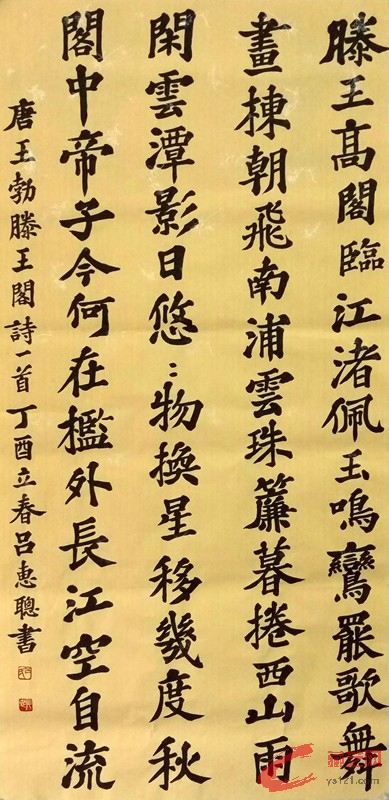 滕王高閣臨江渚佩玉鳴鸞罷歌舞
畫棟朝飛南浦雲珠簾暮捲西山雨
閑雲潭影日悠〻物換星移幾度秋
閣中帝子今何在檻外長江空自流
唐王勃滕王閣詩一首丁酉立春呂惠聰書
ys121.com